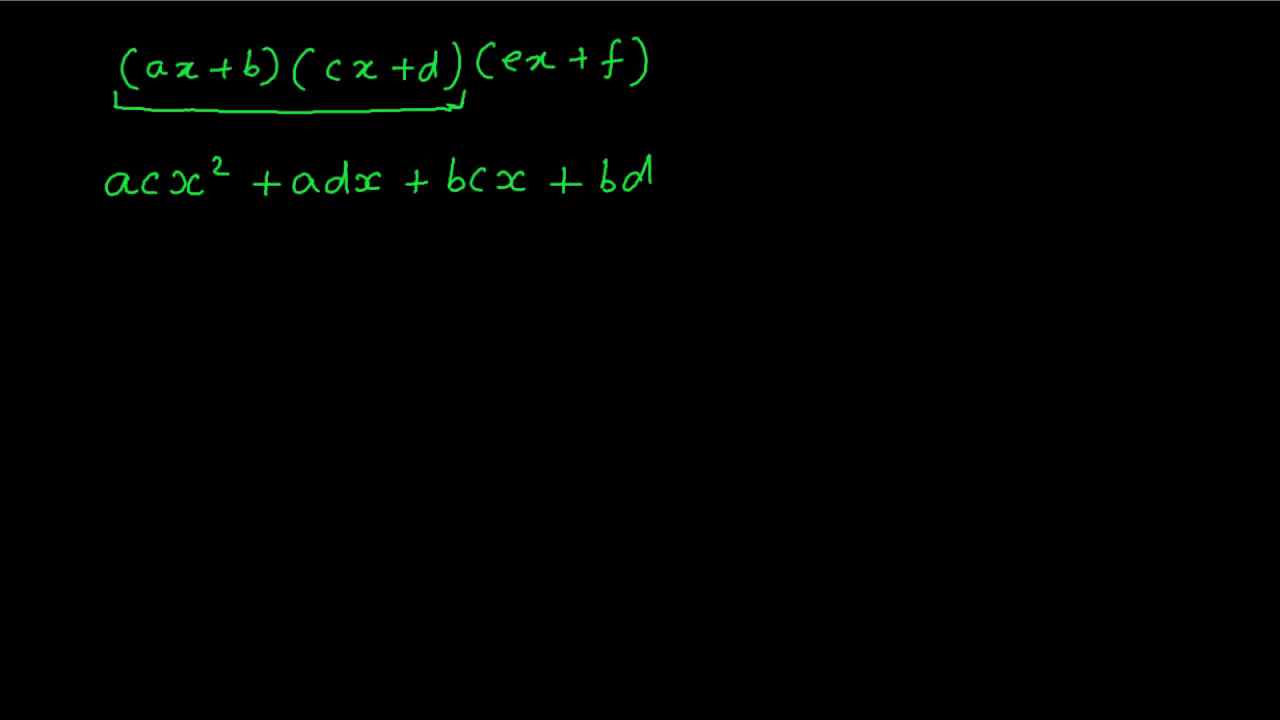 (ax+b)(cx+d)(ex+f)
acx² + adx + bcx + bd